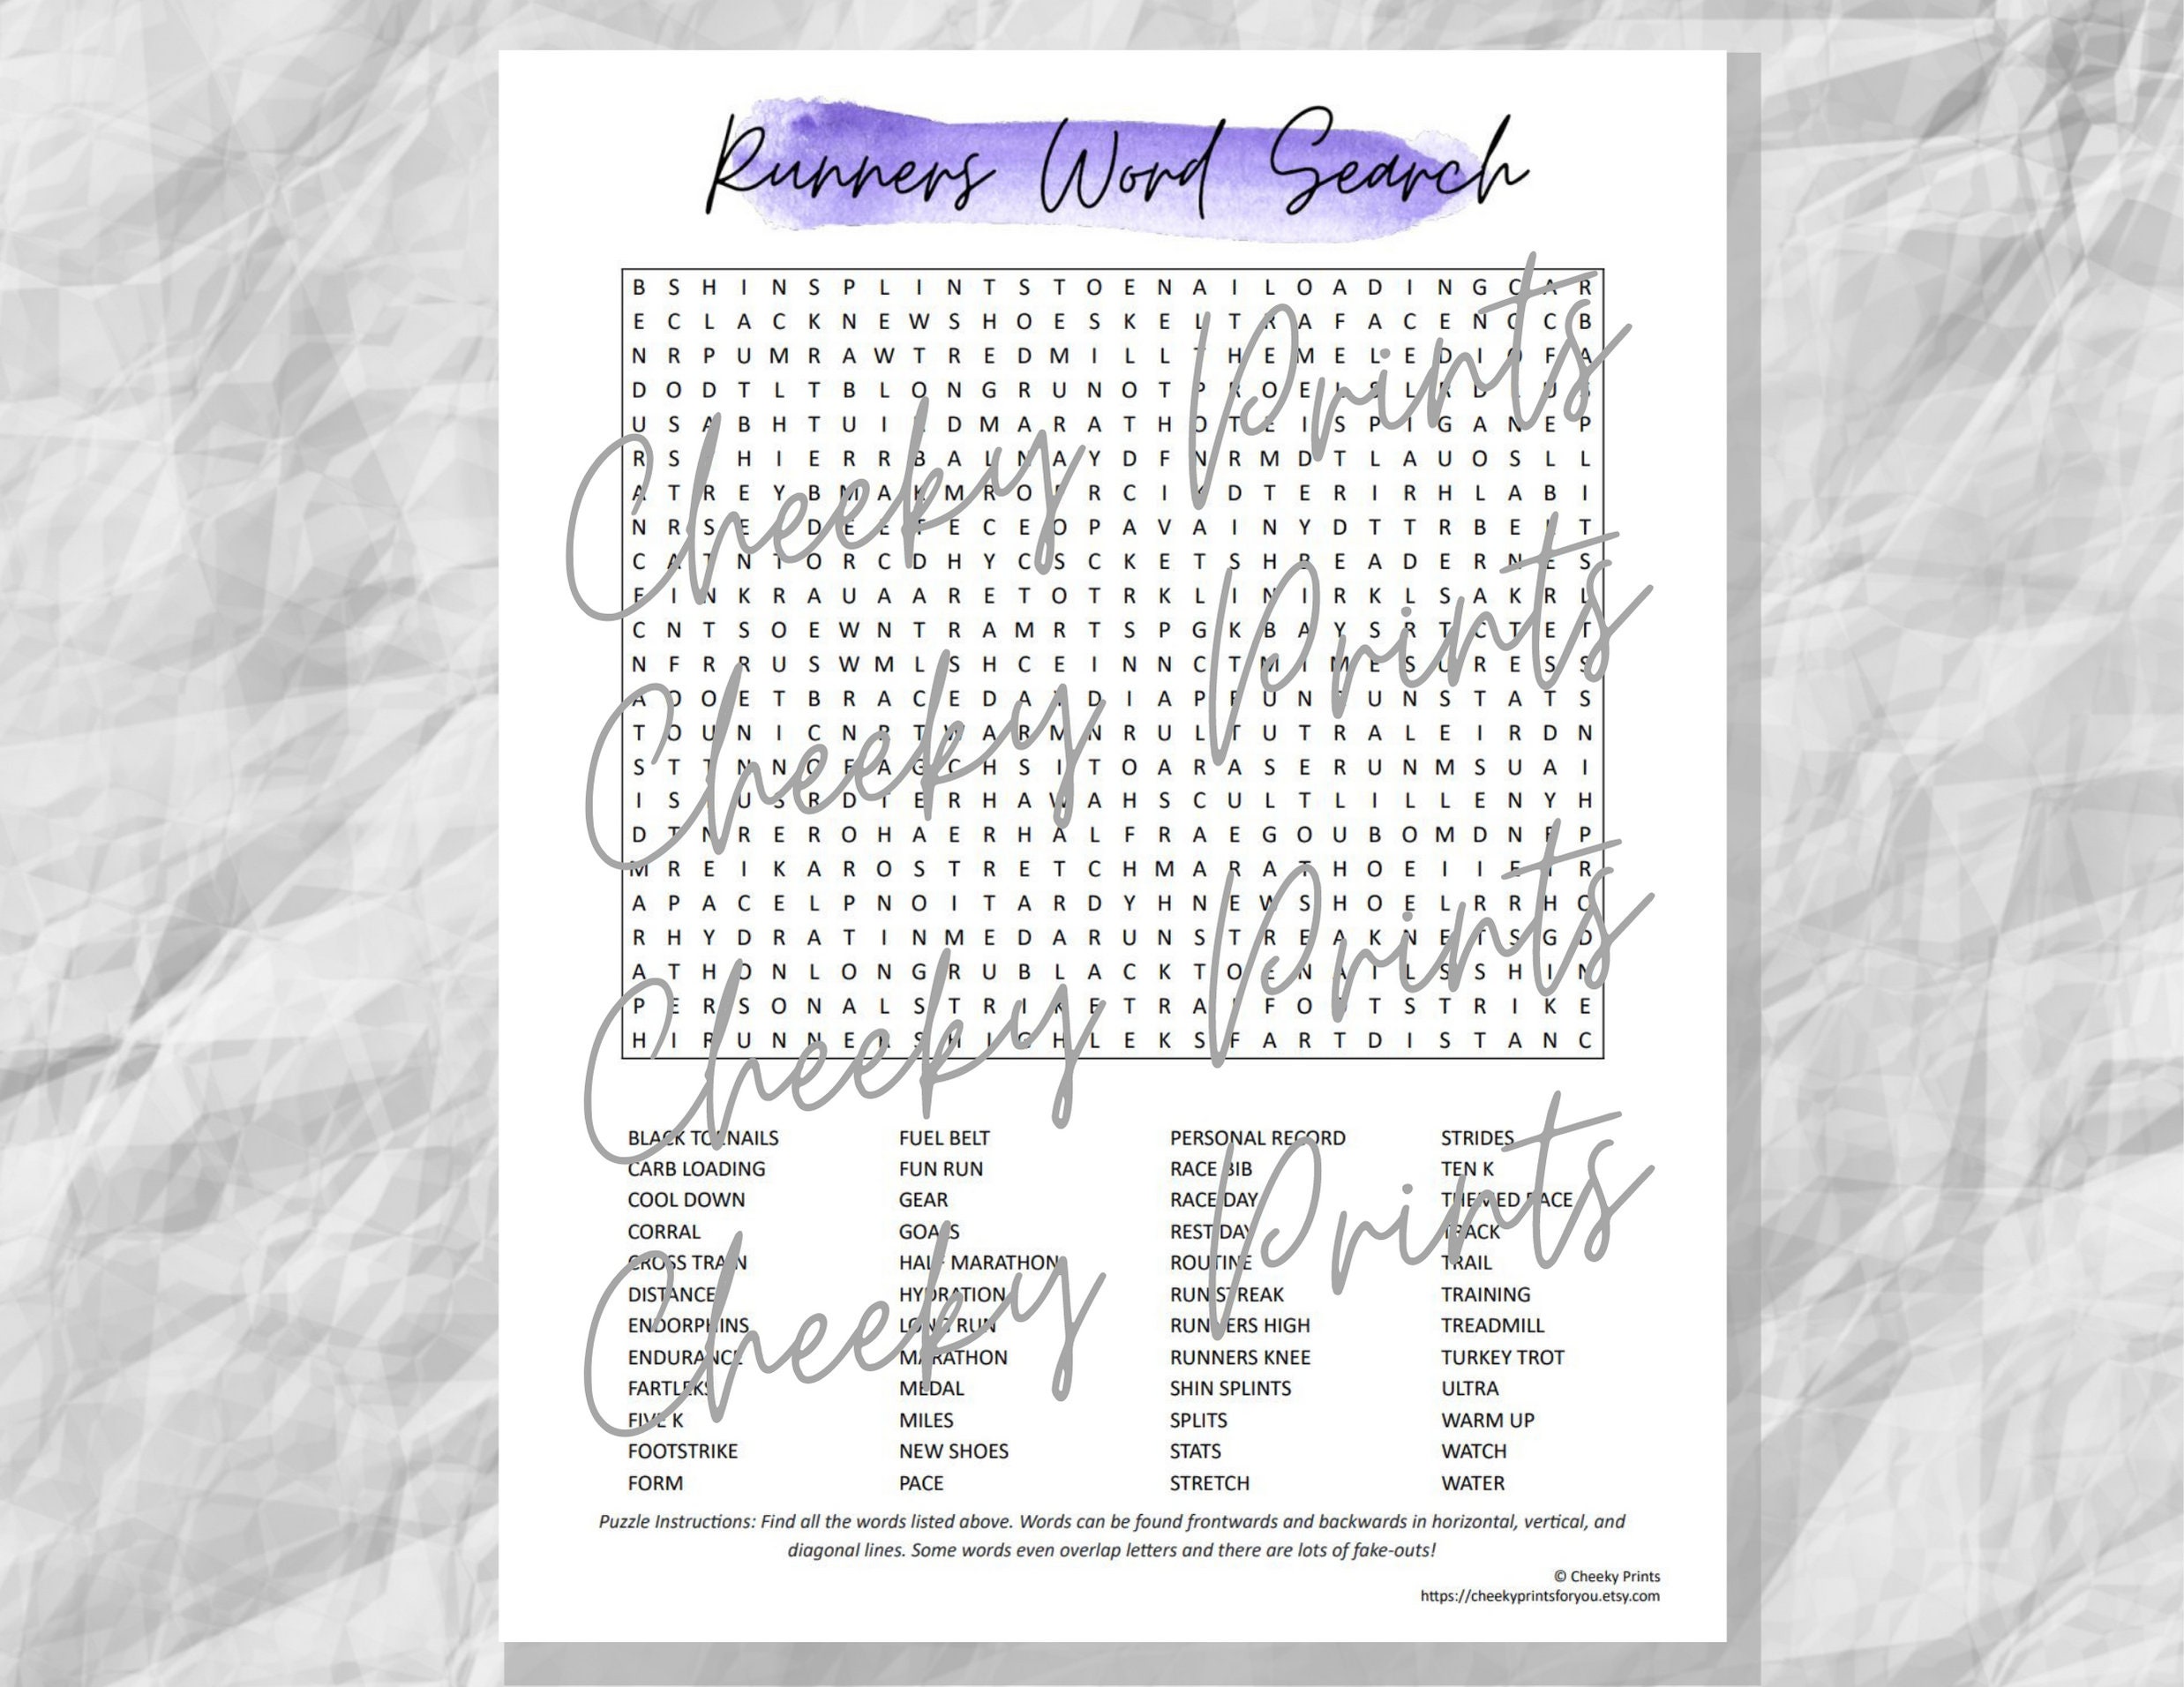 Runners Word Search
B S H I N S P L I N T S T O E N A I L O A D I N G C A R
E C L A C K N E W S H O E S K E L T R A F A C E N O C B
N R P U M R A W T R E D M I L L T H E M E L E D I O F A
D O D T L T B L O N G R U N O T P R O E L S L R D U S
U S A B H T U I D M A R A T H O T E I S P I G A N E P
R S H I E R R B A L N A Y D F N R M D T L A U O S L L
A T R E Y B M A K M R O R C I K D T E R I R H L A B I
N R S E D E E F E C E O P A V A I N Y D T T R B E L T
C A T N T O R C D H Y C S C K E T S H R E A D E R N E S
E I N K R A U A A R E T O T R K L I N I R K L S A K R L
C N T S O E W N T R A M R T S P G K B A Y S R T C T E T
N F R R U S W M L S H C E I N N C T M I M E S U R E S S
A O O E T B R A C E D A Y D I A P F U N R U N S T A T S
T O U N I C N R T W A R M N R U L T U T R A L E I R D N
S T T N N O F A G C H S I T O A R A S E R U N M S U A I
I S U S R D T E R H A W A H S C U L T L I L L E N Y H
D T N R E R O H A E R H A L F R A E G O U B O M D N E P
M R E I K A R O S T R E T C H M A R A T H O E I I E T R
A P A C E L P N O I T A R D Y H N E W S H O E L R R H O
R H Y D R A T I N M E D A R U N S T R E A K N E T S G D
A T H O N L O N G R U B L A C K T O E N A I L S S H I N
P E R S O N A L S T R I K E T R A I F O O T S T R I K E
H I R U N N E R S H I G H L E K S F A R T D I S T A N C
BLACK TOENAILS FUEL BELT PERSONAL RECORD STRIDES
CARB LOADING FUN RUN RACE BIB TEN K
COOL DOWN GEAR RACE DAY THEMED RACE
CORRAL GOALS REST DAY TRACK
CROSS TRAIN HALF MARATHON ROUTINE TRAIL
DISTANCE HYDRATION RUN STREAK TRAINING
ENDORPHINS LONG RUN RUNNERS HIGH TREADMILL
ENDURANCE MARATHON RUNNERS KNEE TURKEY TROT
FARTLEKS MEDAL SHIN SPLINTS ULTRA
FIVE K MILES SPLITS WARM UP
FOOTSTRIKE NEW SHOES STATS WATCH
FORM PACE STRETCH WATER
Puzzle Instructions: Find all the words listed above. Words can be found frontwards and backwards in horizontal, vertical, and
diagonal lines. Some words even overlap letters and there are lots of fake-outs!
© Cheeky Prints
https://cheekyprintsforyou.etsy.com
Cheeky Prints
Cheeky Prints
Cheeky Prints
Cheeky Prints